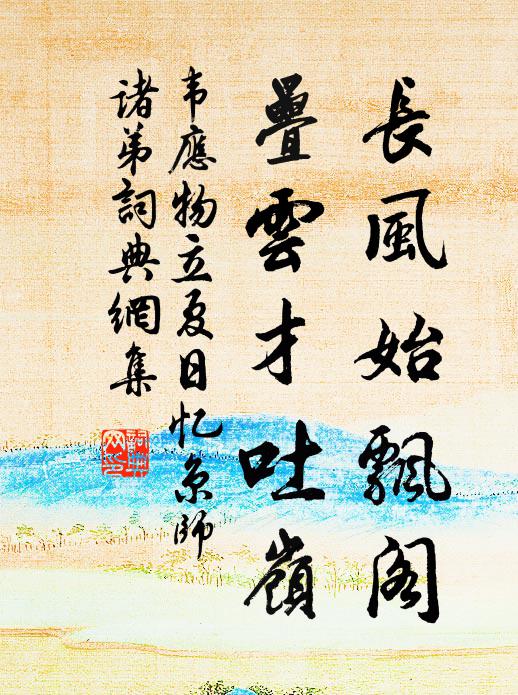 長風始飄閣
疊雲才吐嶺
韦應物立夏日忆京師
诸弟詞典網集